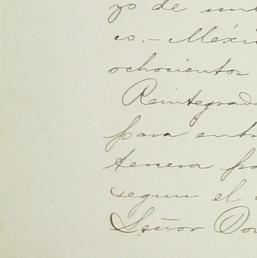 zo de
co.- Méxi
ochocientos
Reintegrad
para entr
tercera pa
segun el
Señor Do